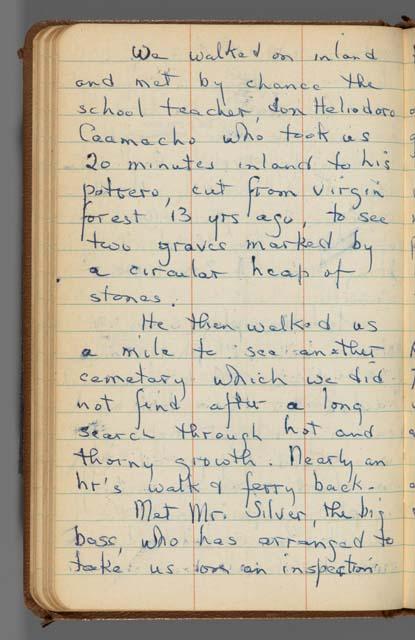 We walked on inland
and met by chance the
school teacher, Don Heliodoro
Caamacho who took us
20 minutes inland to his
potrero, cut from virgin
forest 13 yrs ago, to see
two graves marked by
a circular heap of
stones.
He then walked us
a mile to see another
cemetary which we did
not find after a long
search through hot and
thorny growth. Nearly an
hr's walk & ferry back.
Met Mr. Silver, the big
boss, who has arranged to
take us on an inspection